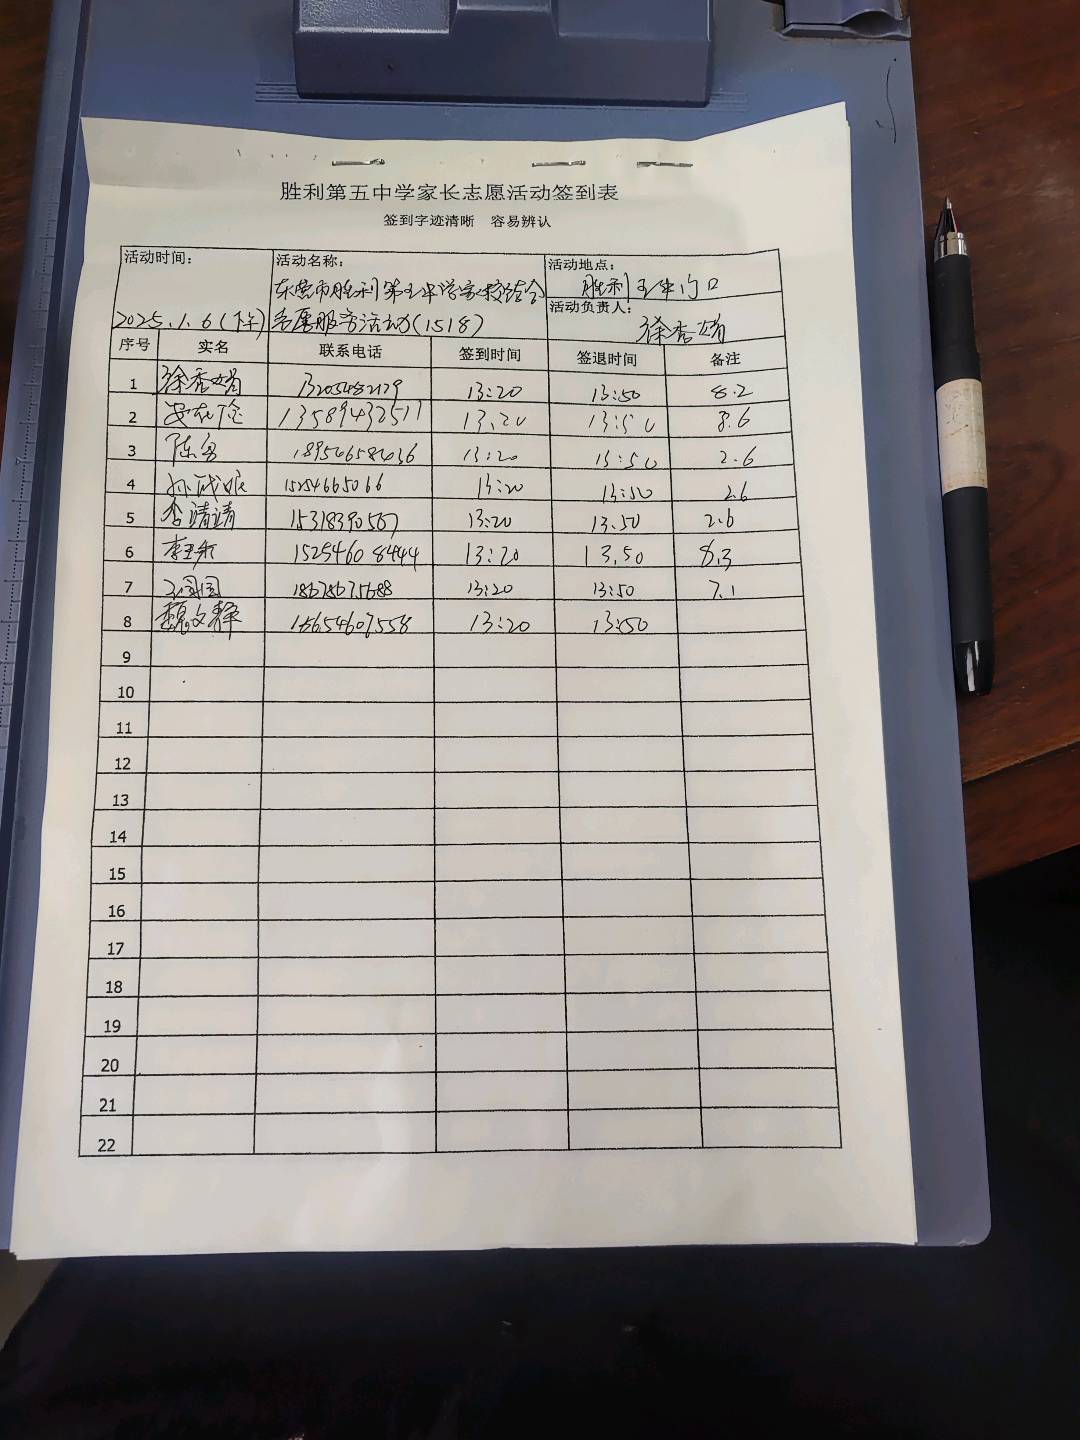 胜利第五中学家长志愿活动签到表
签到字迹清晰 容易辨认
活动时间： 活动名称： 活动地点：
东营市胜利第五中学家校结合 胜利五中门口
活动负责人：
2025.1.6(下午) 志愿服务活动(1518) 徐秀娟
序号 实名 联系电话 签到时间 签退时间 备注
1 徐秀娟 13:20 13:50 8.2
2 13589432511 13:20 13:50 8.6
3 陈勇 13:20 13:50 2.6
4 15254665066 13:20 13:50 2.6
5 李靖靖 15318390567 13:20 13.50 2.6
6 15254608444 13:20 13.50 8.3
7 13:20 13:50 7.1
8 魏文 18654607558 13:20 13:50
9
10
11
12
13
14
15
16
17
18
19
20
21
22